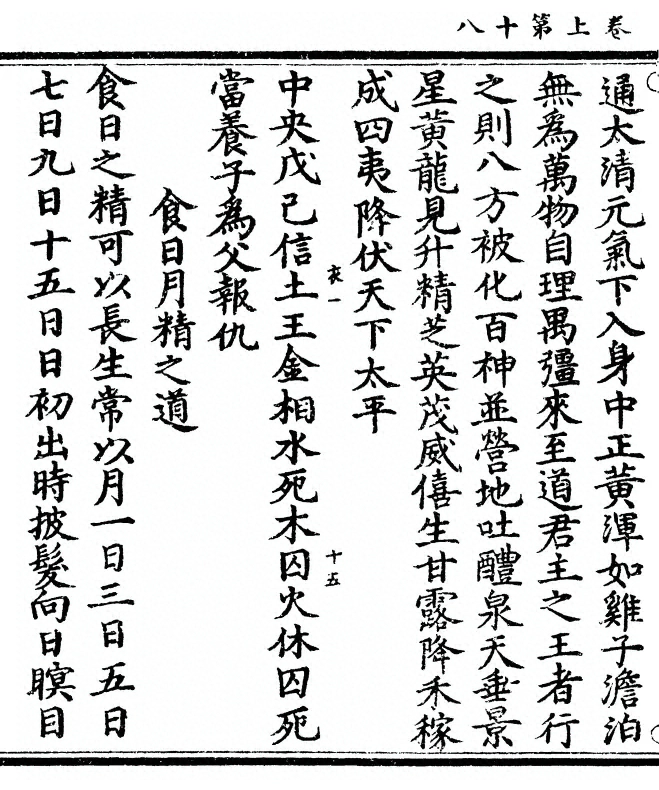 卷上第十八
通太清元氣下入身中正黃渾如雞子澹泊
無爲萬物自理禺彊來至道君主之王者行
之則八方被化百神並營地吐醴泉天垂景
星黃龍見升精芝英茂威僖生甘露降禾稼
成四夷降伏天下太平
衣一
十五
中央戊己信土王金相水死木囚火休囚死
當養子爲父報仇
食日月精之道
食日之精可以長生常以月一日三日五日
七日九日十五日日初出時披髮向日瞑目